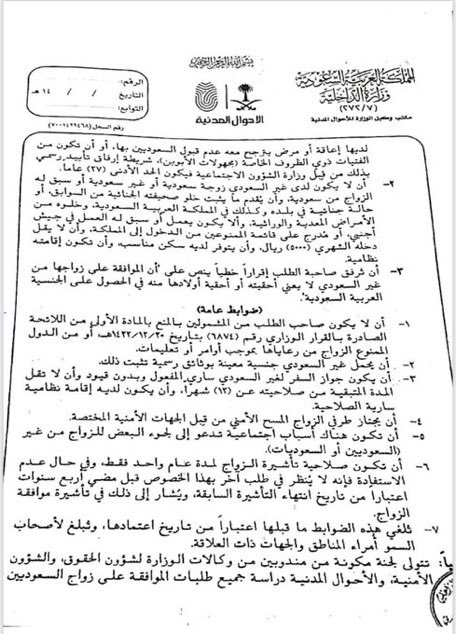 المملكة العربية السعودية
وزارة الداخلية
(٢٧٢/٧)
مكتب وكيل الوزارة للأحوال المدنية
الأحوال المدنية
الرقم:
التاريخ / / ١٤ هـ
التوابع:
رقم السجل (٧٠٠١٤٢٩٤٦٨)
لديها إعاقة أو مرض يترجح معه عدم قبول السعوديين بها، أو أن تكون من
الفتيات ذوي الظروف الخاصة (مجهولات الأبوين)، شريطة إرفاق تأييد رسمي
بذلك من قبل وزارة الشؤون الاجتماعية فيكون الحد الأدنى (٢٧) عاما.
٢- أن لا يكون لدى غير السعودي زوجة سعودية أو غير سعودية أو سبق له
الزواج من سعودية، وأن يُقدم ما يثبت خلو صحيفته الجنائية من السوابق، أو
حالة جنائية في بلده وكذلك في المملكة العربية السعودية، وخلوه من
الأمراض المعدية والوراثية، وألا يكون يعمل أو سبق له العمل في جيش
أجنبي، أو مُدرج على قائمة الممنوعين من الدخول إلى المملكة، وأن لا يقل
دخله الشهري (٥٠٠٠) ريال، وأن يتوفر لديه سكن مناسب، وأن تكون إقامته
نظامية.
٣- أن تُرفق صاحبة الطلب إقراراً خطياً ينص على "أن الموافقة على زواجها من
غير السعودي لا يعني أحقيته أو أحقية أولادها منه في الحصول على الجنسية
العربية السعودية".
(ضوابط عامة)
١- أن لا يكون صاحب الطلب من المشمولين بالمنع بالمادة الأولى من اللائحة
الصادرة بالقرار الوزاري رقم (٦٨٧٤) بتاريخ ١٤٢٢/١٢/٢٠هـ، أو من الدول
الممنوع الزواج من رعاياها بموجب أوامر أو تعليمات.
٢- أن يحمل غير السعودي جنسية معينة بوثائق رسمية تثبت ذلك.
٣- أن يكون جواز السفر لغير السعودي ساري المفعول وبدون قيود وأن لا تقل
المدة المتبقية من صلاحيته عن (١٢) شهراً، وأن يكون لديه إقامة نظامية
سارية الصلاحية.
٤- أن يجتاز طرفي الزواج المسح الأمني من قبل الجهات الأمنية المختصة.
٥- أن تكون هناك أسباب اجتماعية تدعو إلى لجوء البعض للزواج من غير
(السعوديين أو السعوديات).
٦- أن تكون صلاحية تأشيرة الزواج لمدة عام واحد فقط، وفي حال عدم
الاستفادة فإنه لا يُنظر في طلب آخر بهذا الخصوص قبل مضي أربع سنوات
اعتبارا من تاريخ انتهاء التأشيرة السابقة، ويُشار إلى ذلك في تأشيرة موافقة
الزواج.
٧- تلغي هذه الضوابط ما قبلها اعتباراً من تاريخ اعتمادها، وتبلغ لأصحاب
السمو أمراء المناطق والجهات ذات العلاقة.
تتولى لجنة مكونة من مندوبين من وكالات الوزارة لشؤون الحقوق، والشؤون
الأمنية، والأحوال المدنية دراسة جميع طلبات الموافقة على زواج السعوديين